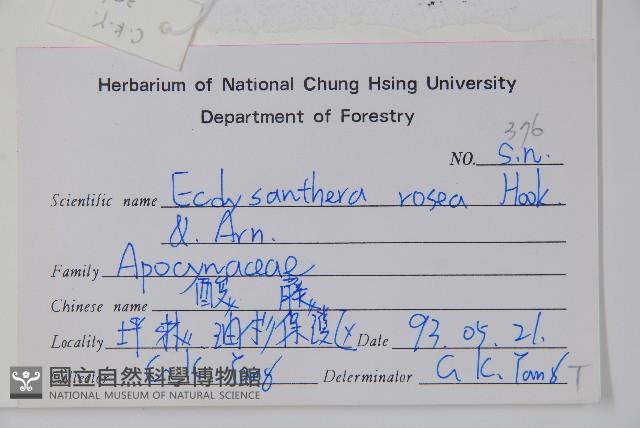 C.K.Y.
Herbarium of National Chung Hsing University
Department of Forestry
376
NO. s.n.
Scientific name Ecdysanthera rosea Hook.
& Arn.
Family Apocynaceae
Chinese name 酸藤
Locality 坪林、油杉保護區 Date 93.05.21.
Determinator C. K. Yang
國立自然科學博物館
NATIONAL MUSEUM OF NATURAL SCIENCE
T